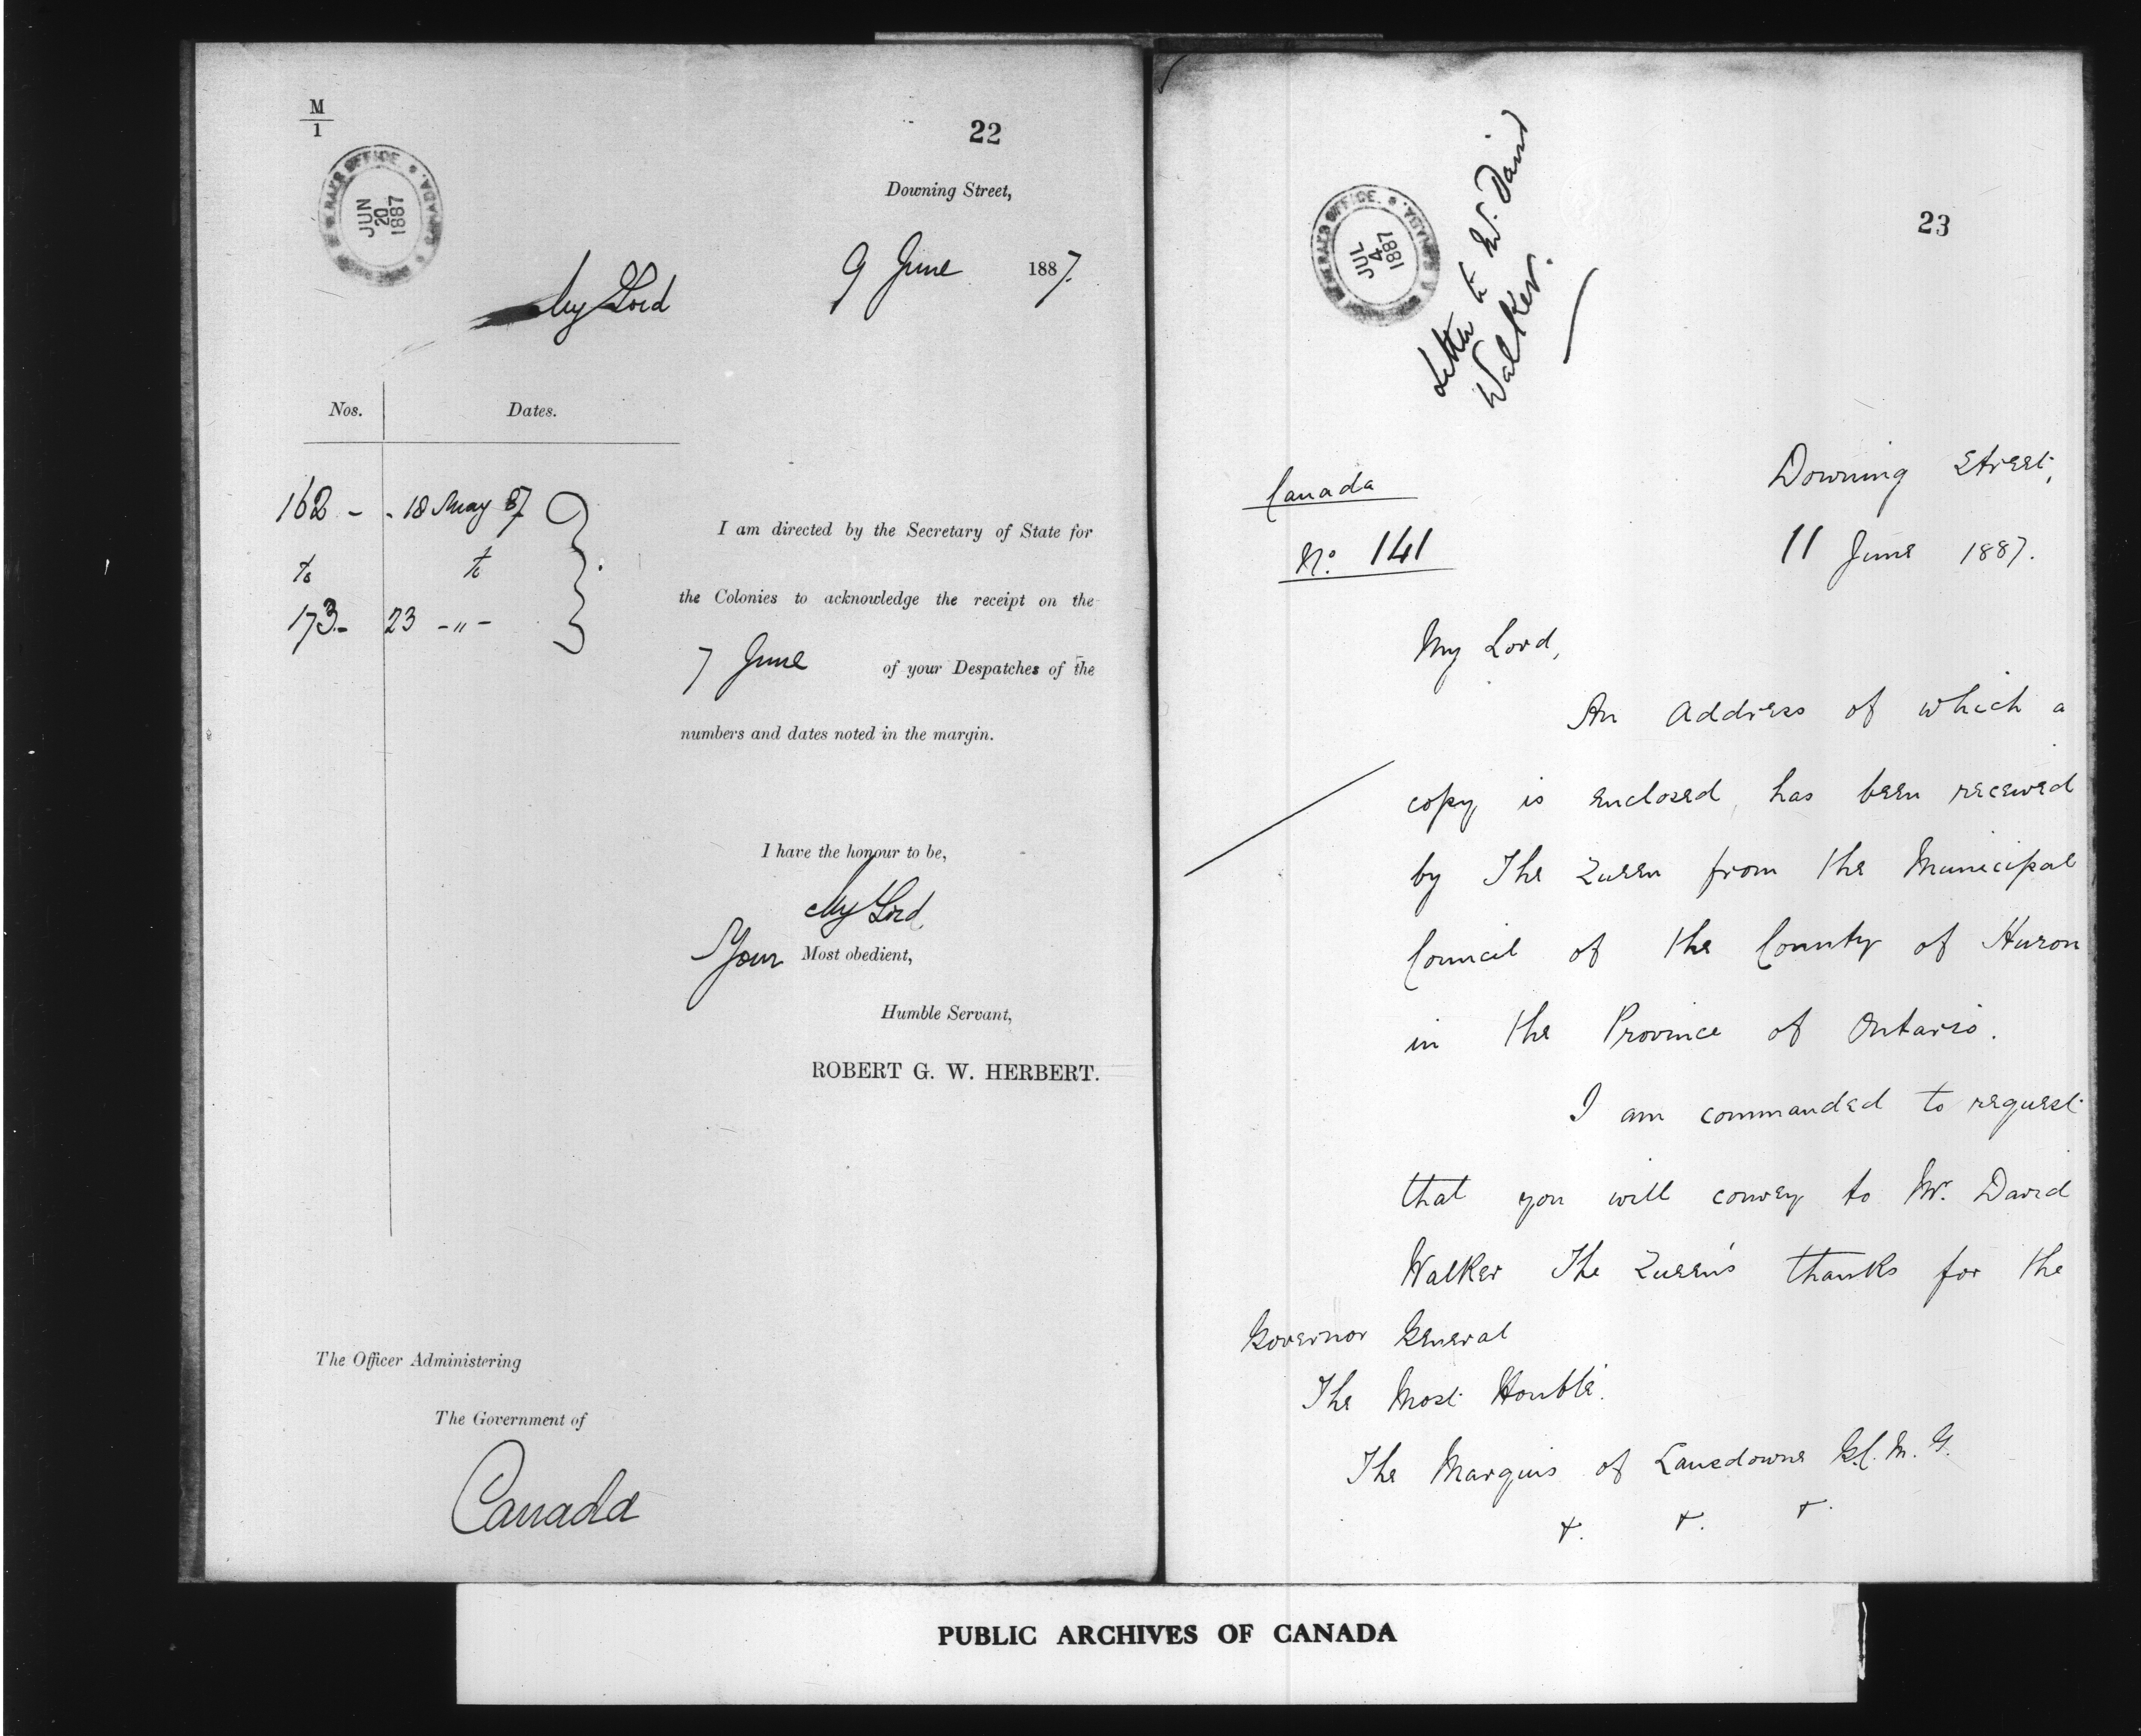 M
1
22
GOVERNOR GENERAL'S OFFICE. CANADA.
JUN
20
1887
Downing Street,
9 June 1887.
My Lord
Nos. Dates.
162 - - 18 May 87
to to
173 - 23 - " -
I am directed by the Secretary of State for
the Colonies to acknowledge the receipt on the
7 June of your Despatches of the
numbers and dates noted in the margin.
I have the honour to be,
My Lord
Your Most obedient,
Humble Servant,
ROBERT G. W. HERBERT.
The Officer Administering
The Government of
Canada
23
JUL
4
1887
Letter to W. David
Walker.
Canada
No. 141
Downing Street,
11 June 1887.
My Lord,
An Address of which a
copy is enclosed, has been received
by The Queen from the Municipal
Council of the County of Huron
in the Province of Ontario.
I am commanded to request
that you will convey to Mr. David
Walker The Queen's thanks for the
Governor General
The Most Honble.
The Marquis of Lansdowne G.C.M.G.
&. &. &.
PUBLIC ARCHIVES OF CANADA